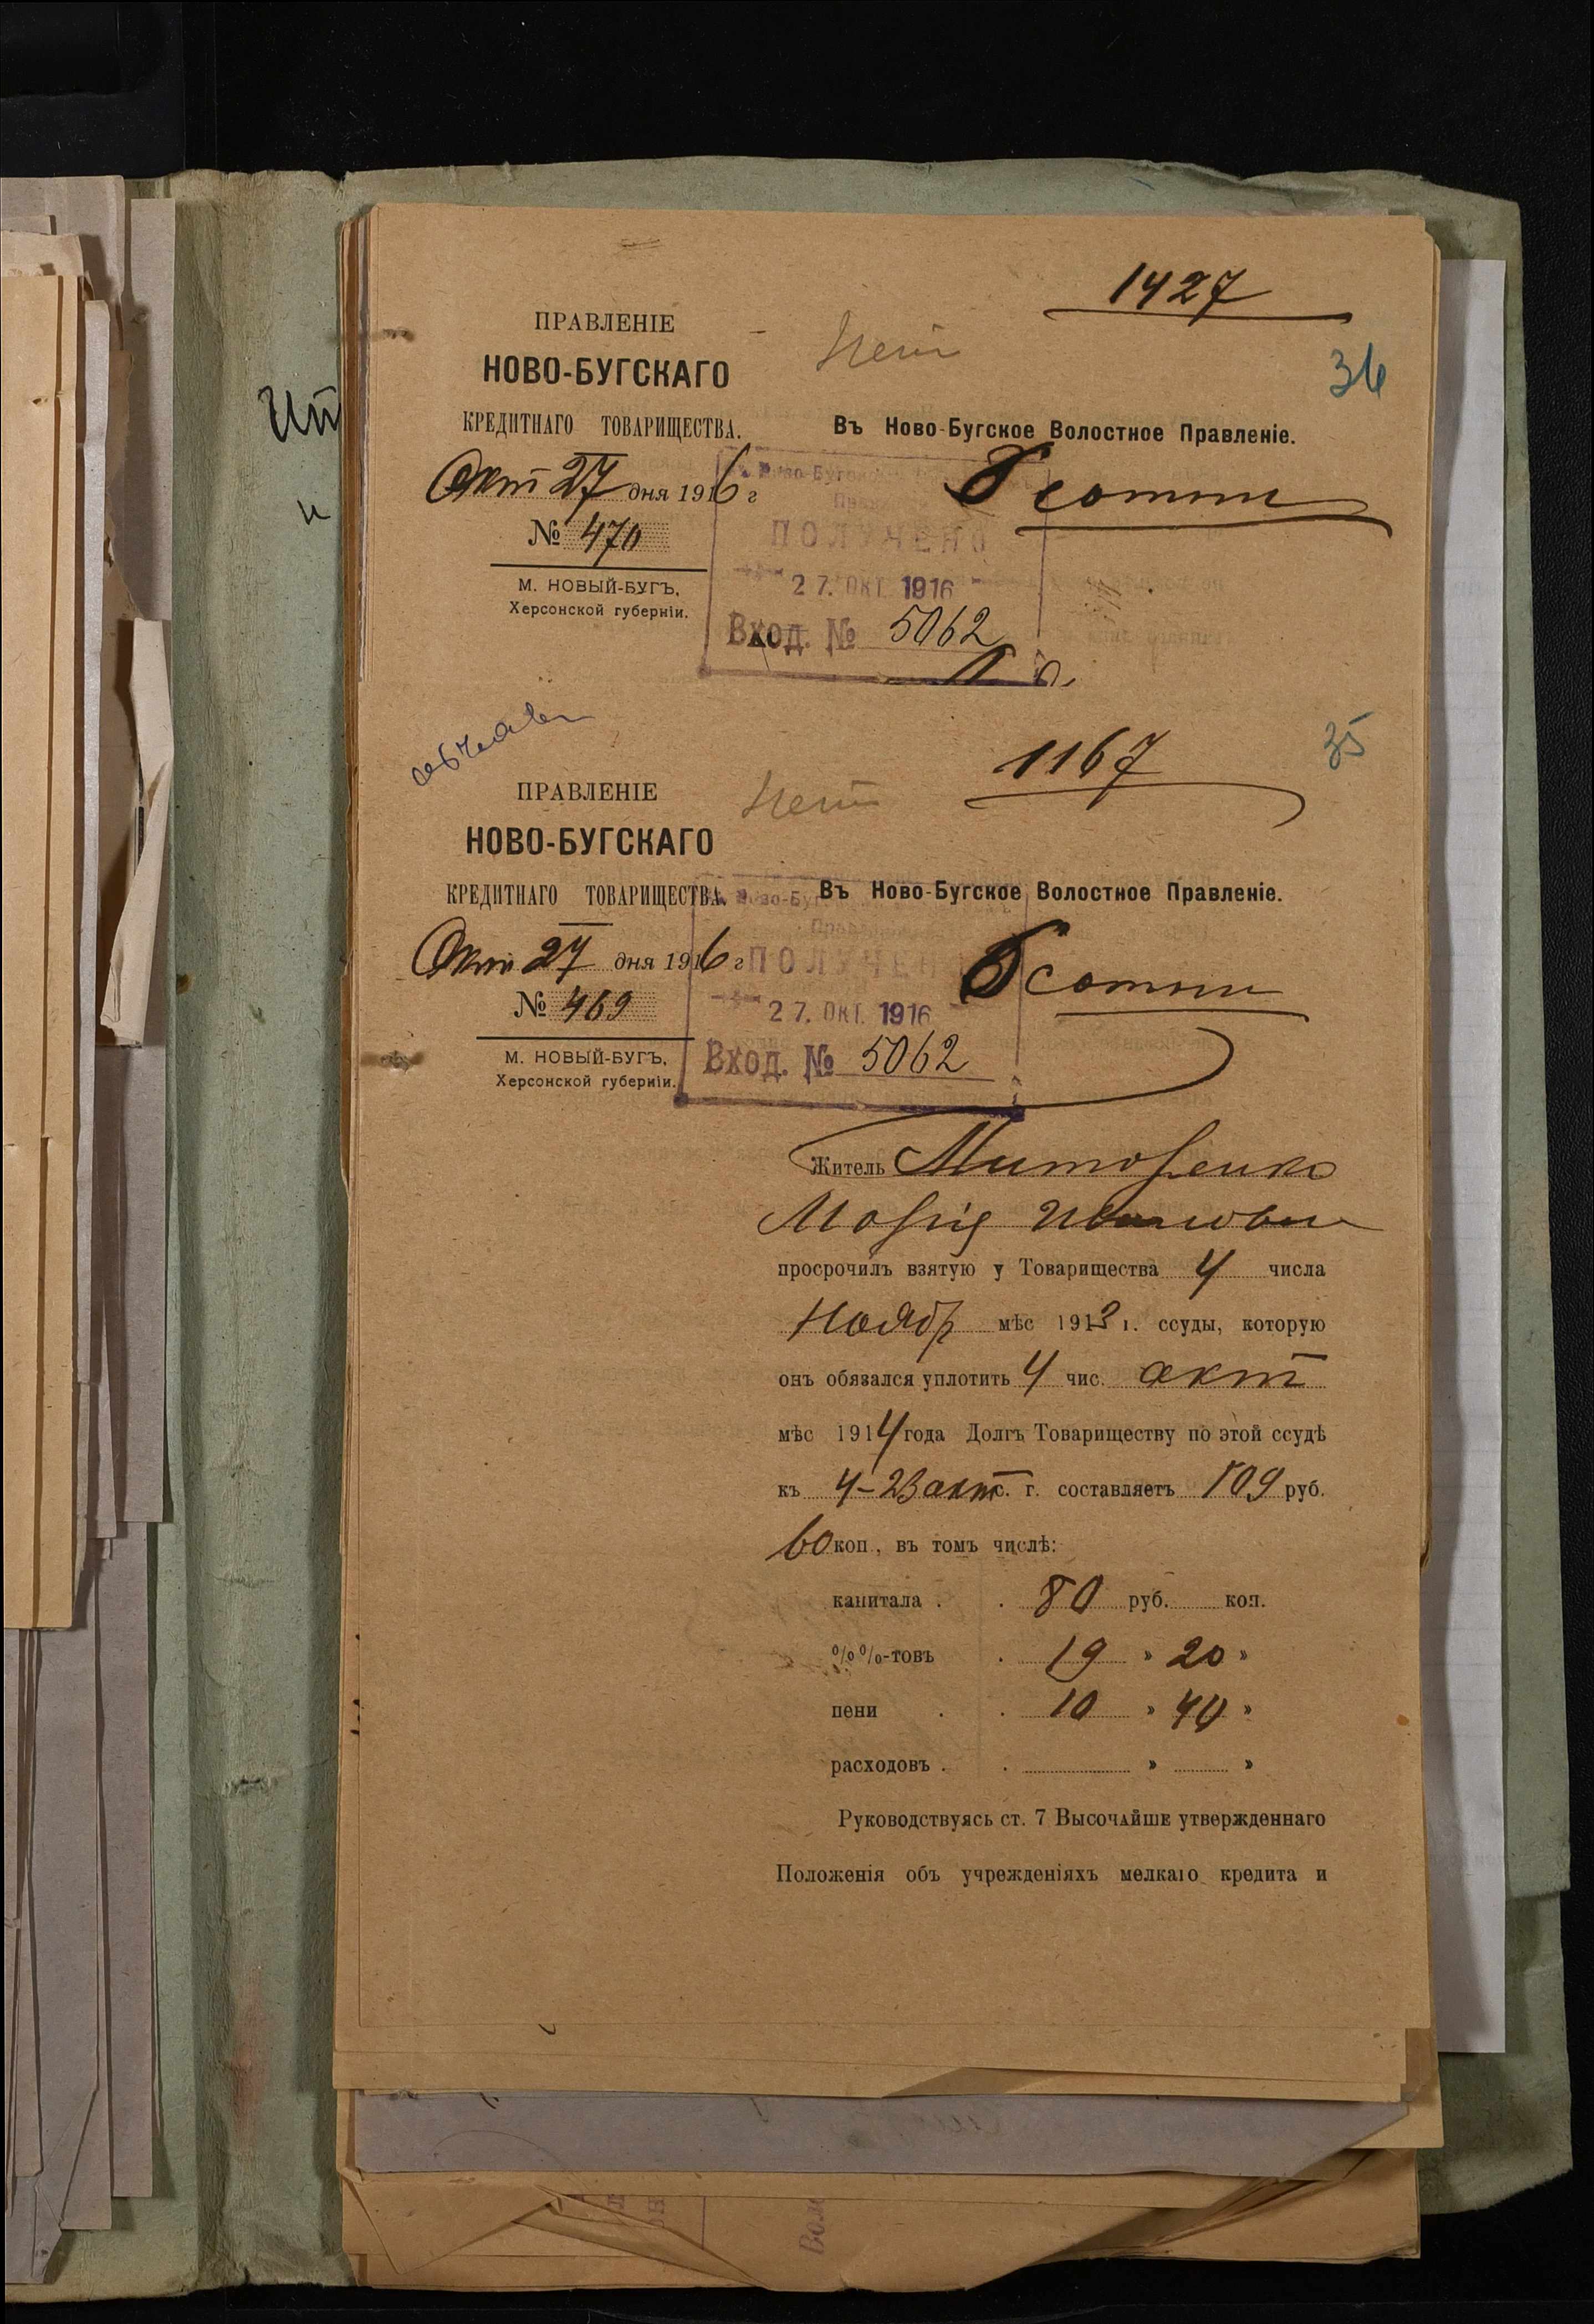 1427
ПРАВЛЕНІЕ
Нет
36
НОВО-БУГСКАГО
КРЕДИТНАГО ТОВАРИЩЕСТВА.
Въ Ново-Бугское Волостное Правленіе.
Окт 27 дня 1916 г
сотни
№ 470
ПОЛУЧЕНО
27. ОКТ. 1916
М. НОВЫЙ-БУГЪ,
Херсонской губерніи.
Вход. № 5062
1167
35
ПРАВЛЕНІЕ
Нет
НОВО-БУГСКАГО
КРЕДИТНАГО ТОВАРИЩЕСТВА.
Въ Ново-Бугское Волостное Правленіе.
Окт 27 дня 1916 г
ПОЛУЧЕН
сотни
№ 469
27. ОКТ. 1916
М. НОВЫЙ-БУГЪ,
Херсонской губерніи.
Вход. № 5062
Житель Миторенко
Марія Иванова
просрочилъ взятую у Товарищества 4 числа
Ноябр мѣс 1913 г. ссуды, которую
онъ обязался уплотить 4 чис. окт
мѣс 1914 года Долгъ Товариществу по этой ссудѣ
къ 4-23 окт с. г. составляетъ 109 руб.
60 коп., въ томъ числѣ:
капитала . . 80 руб. коп.
%%-товъ . 19 » 20 »
пени . . 10 » 40 »
расходовъ . . » »
Руководствуясь ст. 7 Высочайше утвержденнаго
Положенія объ учрежденіяхъ мелкаго кредита и